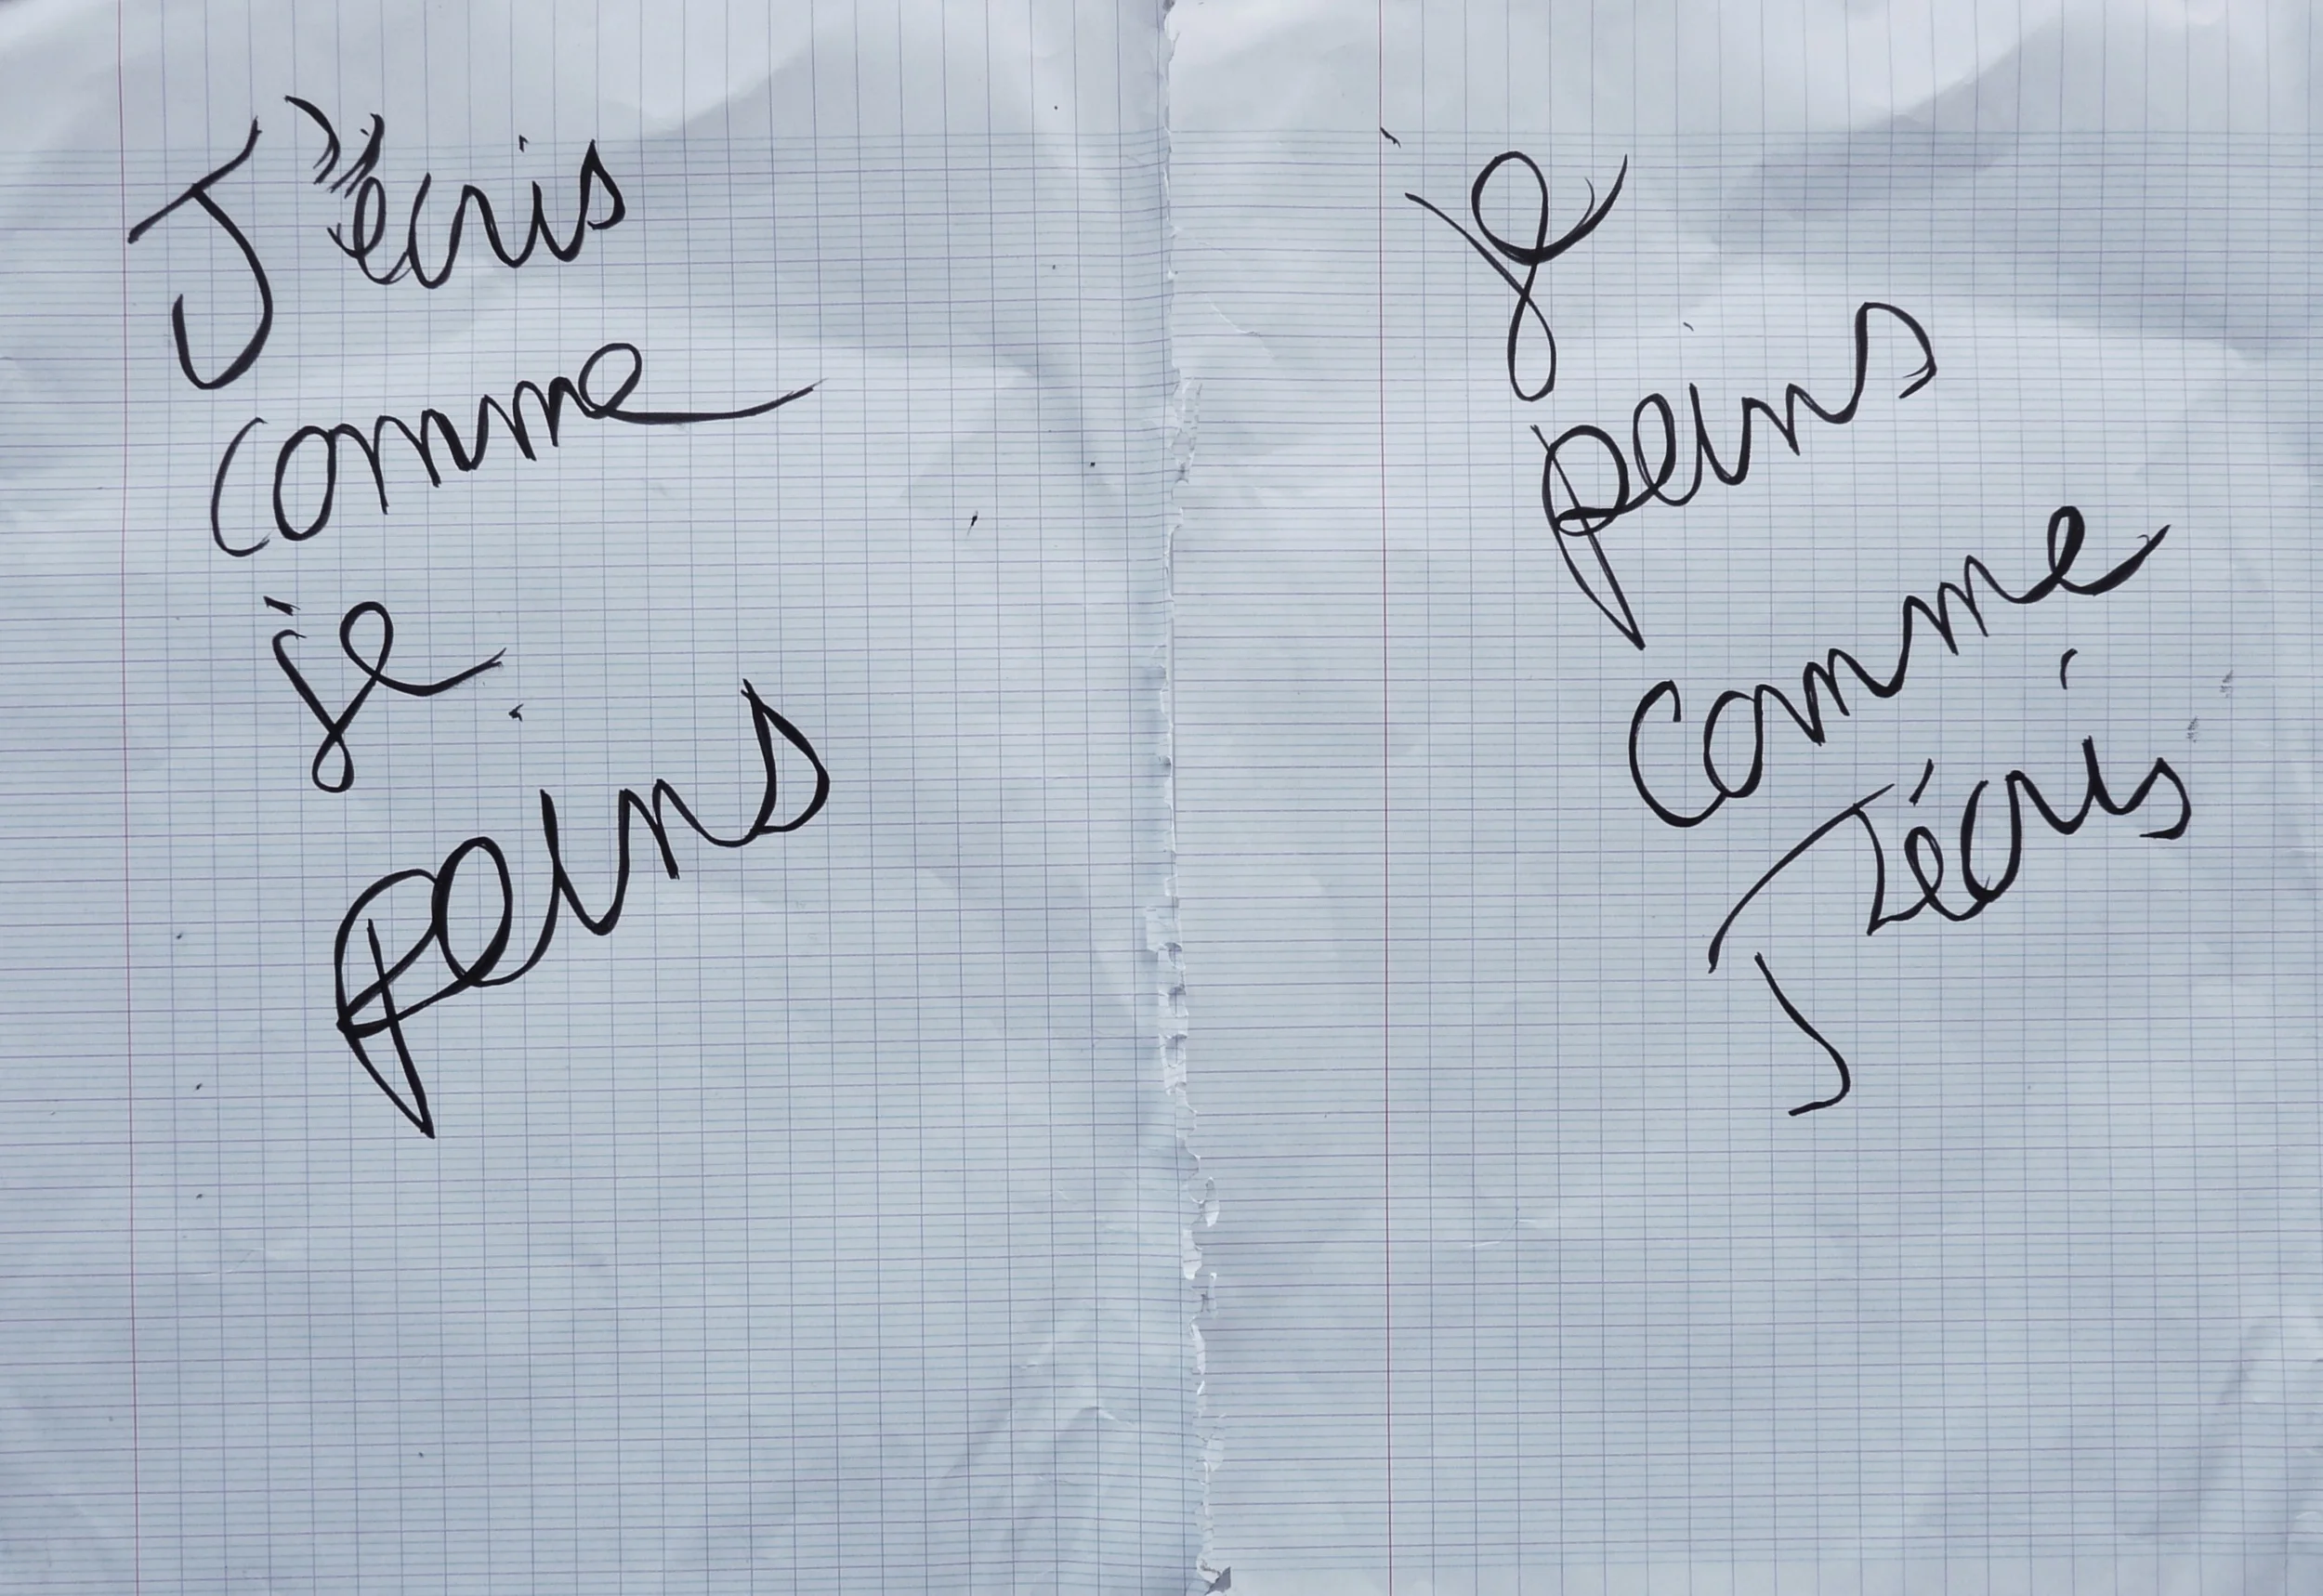 J'écris
comme
je
peins
je
peins
comme
J'écris